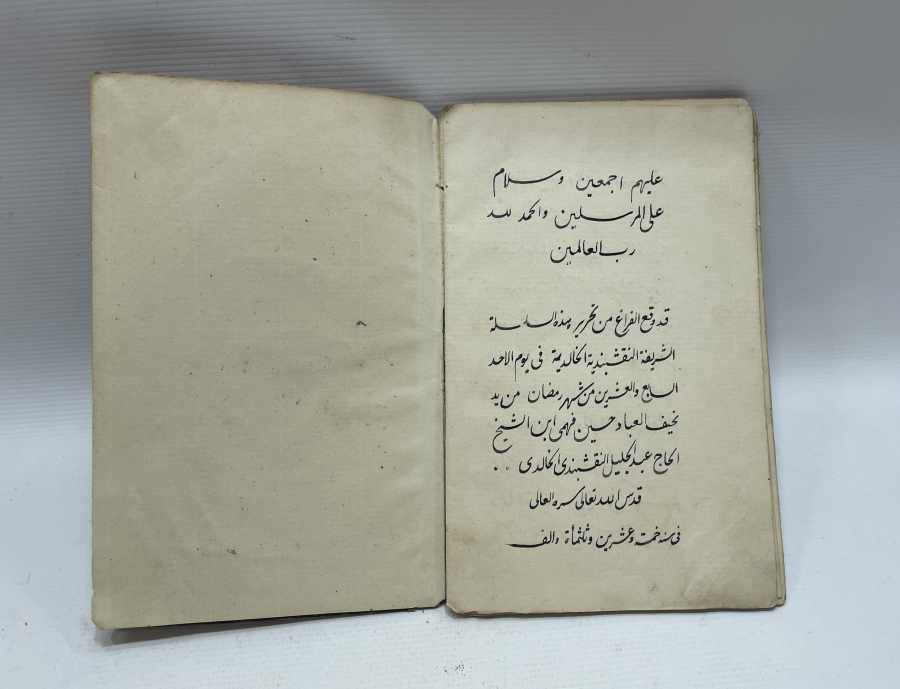 عليهم اجمعين وسلام
على المرسلين والحمد لله
رب العالمين
قد وقع الفراغ من تحرير بهذه السلسلة
الشريفة النقشبندية الخالدية فى يوم الاحد
السابع والعشرين من شهر رمضان من يد
نحيف العباد حسين فهمى ابن الشيخ
الحاج عبد الجليل النقشبندى الخالدى
قدس الله تعالى سره العالى
فى سنه خمسه وعشرين وثلثمأة والف